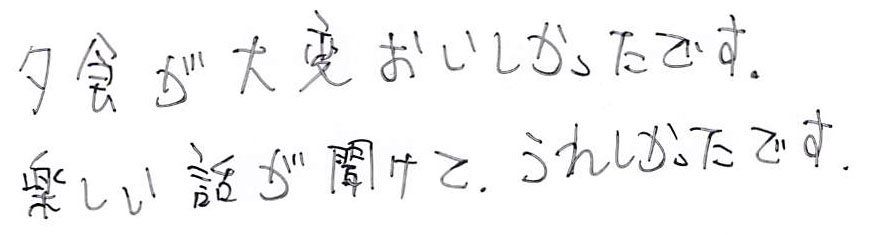 夕食が大変おいしかったです.
楽しい話が聞けて.うれしかったです.